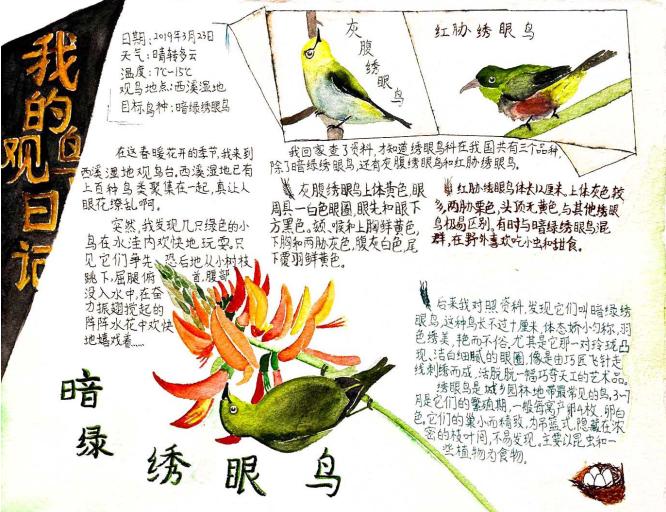 我的观鸟日记
日期:2019年3月23日
天气:晴转多云
温度:7℃-15℃
观鸟地点:西溪湿地
目标鸟种:暗绿绣眼鸟
灰腹绣眼鸟
红胁绣眼鸟
在这春暖花开的季节,我来到
西溪湿地观鸟台,西溪湿地已有
上百种鸟类聚集在一起,真让人
眼花缭乱啊。
突然,我发现几只绿色的小
鸟在水洼内欢快地玩耍。只
见它们争先恐后地从小树枝
跳下,屈腿俯首,腹部
没入水中,在奋
力振翅搅起的
阵阵水花中欢快
地嬉戏着……
我回家查了资料,才知道绣眼鸟科在我国共有三个品种,
除了暗绿绣眼鸟,还有灰腹绣眼鸟和红胁绣眼鸟。
灰腹绣眼鸟上体黄色,眼
周具一白色眼圈,眼先和眼下
方黑色。颏、喉和上胸鲜黄色,
下胸和两胁灰色,腹灰白色,尾
下覆羽鲜黄色。
红胁绣眼鸟体长12厘米,上体灰色较
多,两胁栗色,头顶无黄色,与其他绣眼
鸟极易区别,有时与暗绿绣眼鸟混
群,在野外喜欢吃小虫和甜食。
后来我对照资料,发现它们叫暗绿绣
眼鸟,这种鸟长不过十厘米,体态娇小匀称,羽
色绣美,艳而不俗,尤其是它那一对玲珑凸
现、洁白细腻的眼圈,像是由巧匠飞针走
线刺绣而成,活脱脱一幅巧夺天工的艺术品。
绣眼鸟是城乡园林地带最常见的鸟,3-7
月是它们的繁殖期,一般每窝产卵4枚,卵白
色,它们的巢小而精致,为吊篮式,隐藏在浓
密的枝叶间,不易发现,主要以昆虫和一
些植物为食物。
暗绿绣眼鸟